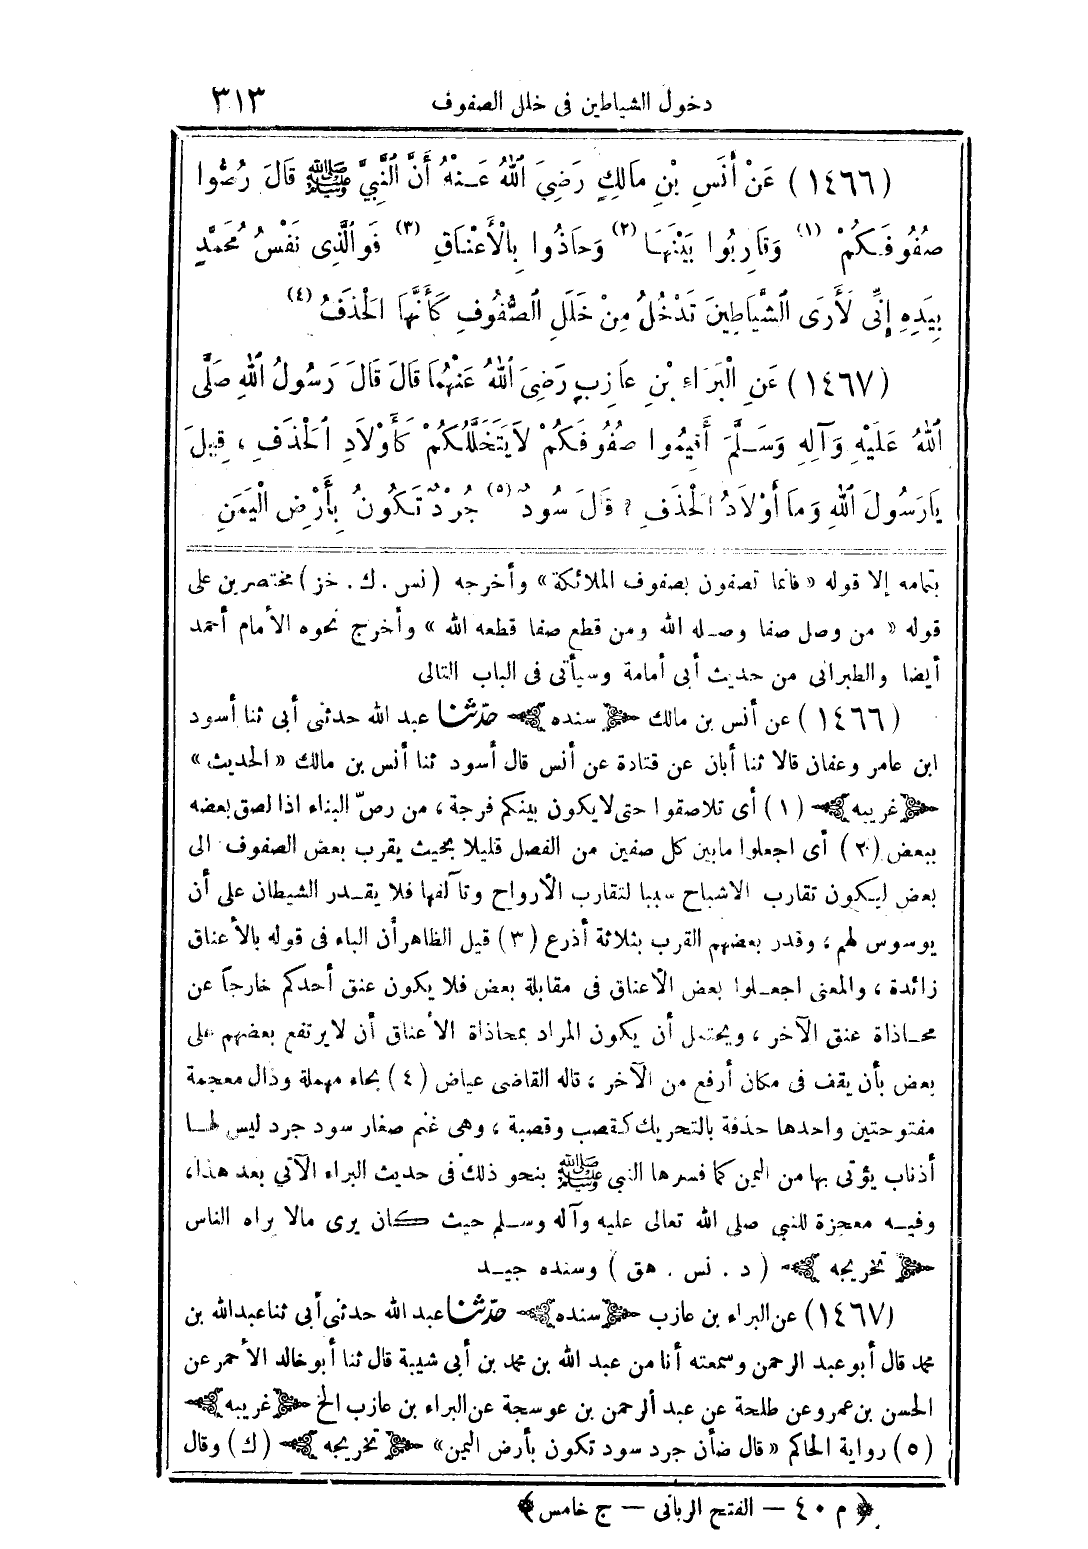 دخول الشياطين فى خلل الصفوف ٣١٣
(١٤٦٦) عَنْ أَنَسِ بْنِ مَالِكٍ رَضِيَ اللهُ عَنْهُ أَنَّ النَّبِيَّ ﷺ قَالَ رُصُّوا
صُفُوفَكُمْ (١) وَقَارِبُوا بَيْنَهَا (٢) وَحَاذُوا بِالْأَعْنَاقِ (٣) فَوَالَّذِى نَفْسُ مُحَمَّدٍ
بِيَدِهِ إِنِّى لَأَرَى الشَّيَاطِينَ تَدْخُلُ مِنْ خَلَلِ الصُّفُوفِ كَأَنَّهَا الْحَذَفُ (٤)
(١٤٦٧) عَنِ الْبَرَاءِ بْنِ عَازِبٍ رَضِيَ اللهُ عَنْهُمَا قَالَ قَالَ رَسُولُ اللهِ صَلَّى
اللهُ عَلَيْهِ وَآلِهِ وَسَلَّمَ أَقِيمُوا صُفُوفَكُمْ لَا يَتَخَلَّلُكُمْ كَأَوْلَادِ الْحَذَفِ ، قِيلَ
يَارَسُولَ اللهِ وَمَا أَوْلَادُ الْحَذَفِ ؟ قَالَ سُودٌ (٥) جُرْدٌ تَكُونُ بِأَرْضِ الْيَمَنِ
بتمامه إلا قوله « فانما تصفون بصفوف الملائكة » وأخرجه (نس . ك . خز) مختصرين على
قوله « من وصل صفا وصله الله ومن قطع صفا قطعه الله » وأخرج نحوه الأمام أحمد
أيضا والطبرانى من حديث أبى أمامة وسيأتى فى الباب التالى
(١٤٦٦) عن أنس بن مالك ﴿ سنده ﴾ حدّثنا عبد الله حدثنى أبى ثنا أسود
ابن عامر وعفان قالا ثنا أبان عن قتادة عن أنس قال أسود ثنا أنس بن مالك « الحديث »
﴿ غريبه ﴾ (١) أى تلاصقوا حتى لا يكون بينكم فرجة ، من رصّ البناء اذا لصق بعضه
ببعض (٢) أى اجعلوا مابين كل صفين من الفصل قليلا بحيث يقرب بعض الصفوف الى
بعض ليكون تقارب الاشباح سببا لتقارب الأرواح وتآلفها فلا يقدر الشيطان على أن
يوسوس لهم ، وقدر بعضهم القرب بثلاثة أذرع (٣) قيل الظاهر أن الباء فى قوله بالأعناق
زائدة ، والمعنى اجعلوا بعض الأعناق فى مقابلة بعض فلا يكون عنق أحدكم خارجاً عن
محاذاة عنق الآخر ، ويحتمل أن يكون المراد بمحاذاة الأعناق أن لا يرتفع بعضهم على
بعض بأن يقف فى مكان أرفع من الآخر ، قاله القاضى عياض (٤) بحاء مهملة وذال معجمة
مفتوحتين واحدها حذفة بالتحريك كقصب وقصبة ، وهى غنم صغار سود جرد ليس لها
أذناب يؤتى بها من اليمن كما فسرها النبي ﷺ بنحو ذلك فى حديث البراء الآتي بعد هذا ،
وفيه معجزة للنبي صلى الله تعالى عليه وآله وسلم حيث كان يرى مالا يراه الناس
﴿ تخريجه ﴾ (د . نس . هق) وسنده جيد
(١٤٦٧) عن البراء بن عازب ﴿ سنده ﴾ حدّثنا عبد الله حدثنى أبى ثنا عبد الله بن
محمد قال أبو عبد الرحمن وسمعته أنا من عبد الله بن محمد بن أبى شيبة قال ثنا أبو خالد الأحمر عن
الحسن بن عمرو عن طلحة عن عبد الرحمن بن عوسجة عن البراء بن عازب الخ ﴿ غريبه ﴾
(٥) رواية الحاكم « قال ضأن جرد سود تكون بأرض اليمن » ﴿ تخريجه ﴾ (ك) وقال
﴿ م ٤٠ — الفتح الربانى — ج خامس ﴾